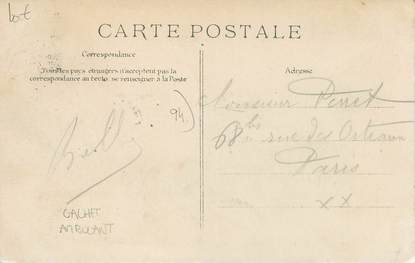 lot
CARTE POSTALE
Correspondance
Tous les pays étrangers n'acceptent pas la
correspondance au recto, se renseigner à la Poste
Adresse
94)
CACHET
AMBULANT
Monsieur Perret
68 bis rue des Orteaux
Paris
XX